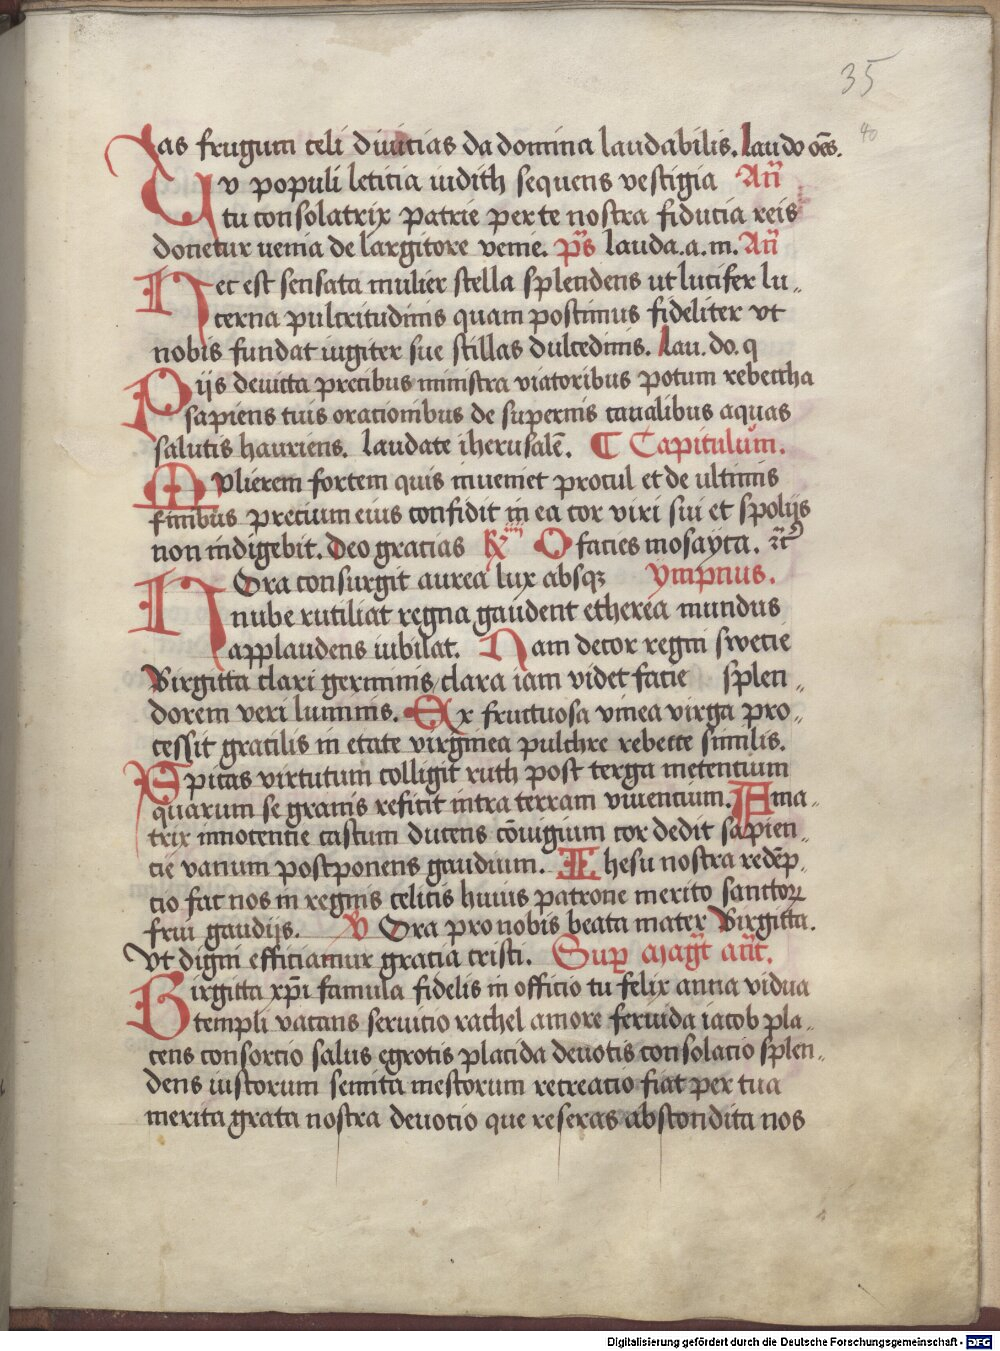 35
40
das frugum celi diuicias da domina laudabilis. Laudo oēs.
Tu populi leticia iudith sequens vestigia Añ
tu consolatrix patrie per te nostra fiducia reis
donetur uenia de largitore venie. p̄s lauda.a.m. Añ
Hec est sensata mulier stella splendens ut lucifer lu-
cerna pulcritudinis quam postimus fideliter vt
nobis fundat iugiter sue stillas dulcedinis. Lau.do.q
Piis deuicta precibus ministra viatoribus potum rebeccha
sapiens tuis oracionibus de supernis caualibus aquas
salutis hauriens. laudate iherusalē. ¶ Capitulum.
Mvlierem fortem quis inueniet procul et de ultimis
finibus precium eius confidit in ea cor viri sui et spolijs
non indigebit. Deo gracias O facies mosayca. ⁊c̄
Hora consurgit aurea lux absqȝ ympnus.
nube rutiliat regna gaudent etherea mundus
applaudens iubilat. Nam decor regni swecie
Birgitta clari germinis clara iam videt facie splen-
dorem veri luminis. Ex fructuosa vinea virga pro-
cessit gracilis in etate virginea pulchre rebecce similis.
Spicas virtutum colligit ruth post terga metencium
quarum se granis reficit intra terram viuencium. Ama-
trix innocentie castum ducens cōiugium cor dedit sapien-
cie vanum postponens gaudium. Ihesu nostra redēp-
cio fac nos in regnis celicis huius patrone merito sanctoꝝ
frui gaudijs. V Ora pro nobis beata mater Birgitta.
Vt digni efficiamur gracia cristi. Sup magt̄ ant̄.
Birgitta xp̄i famula fidelis in officio tu felix anna vidua
templi vacans seruicio rachel amore feruida iacob pla-
cens consorcio salus egrotis placida deuotis consolacio splen-
dens iustorum semita mestorum recreacio fiat per tua
merita grata nostra deuocio que reseras abscondita nos
Digitalisierung gefördert durch die Deutsche Forschungsgemeinschaft - DFG